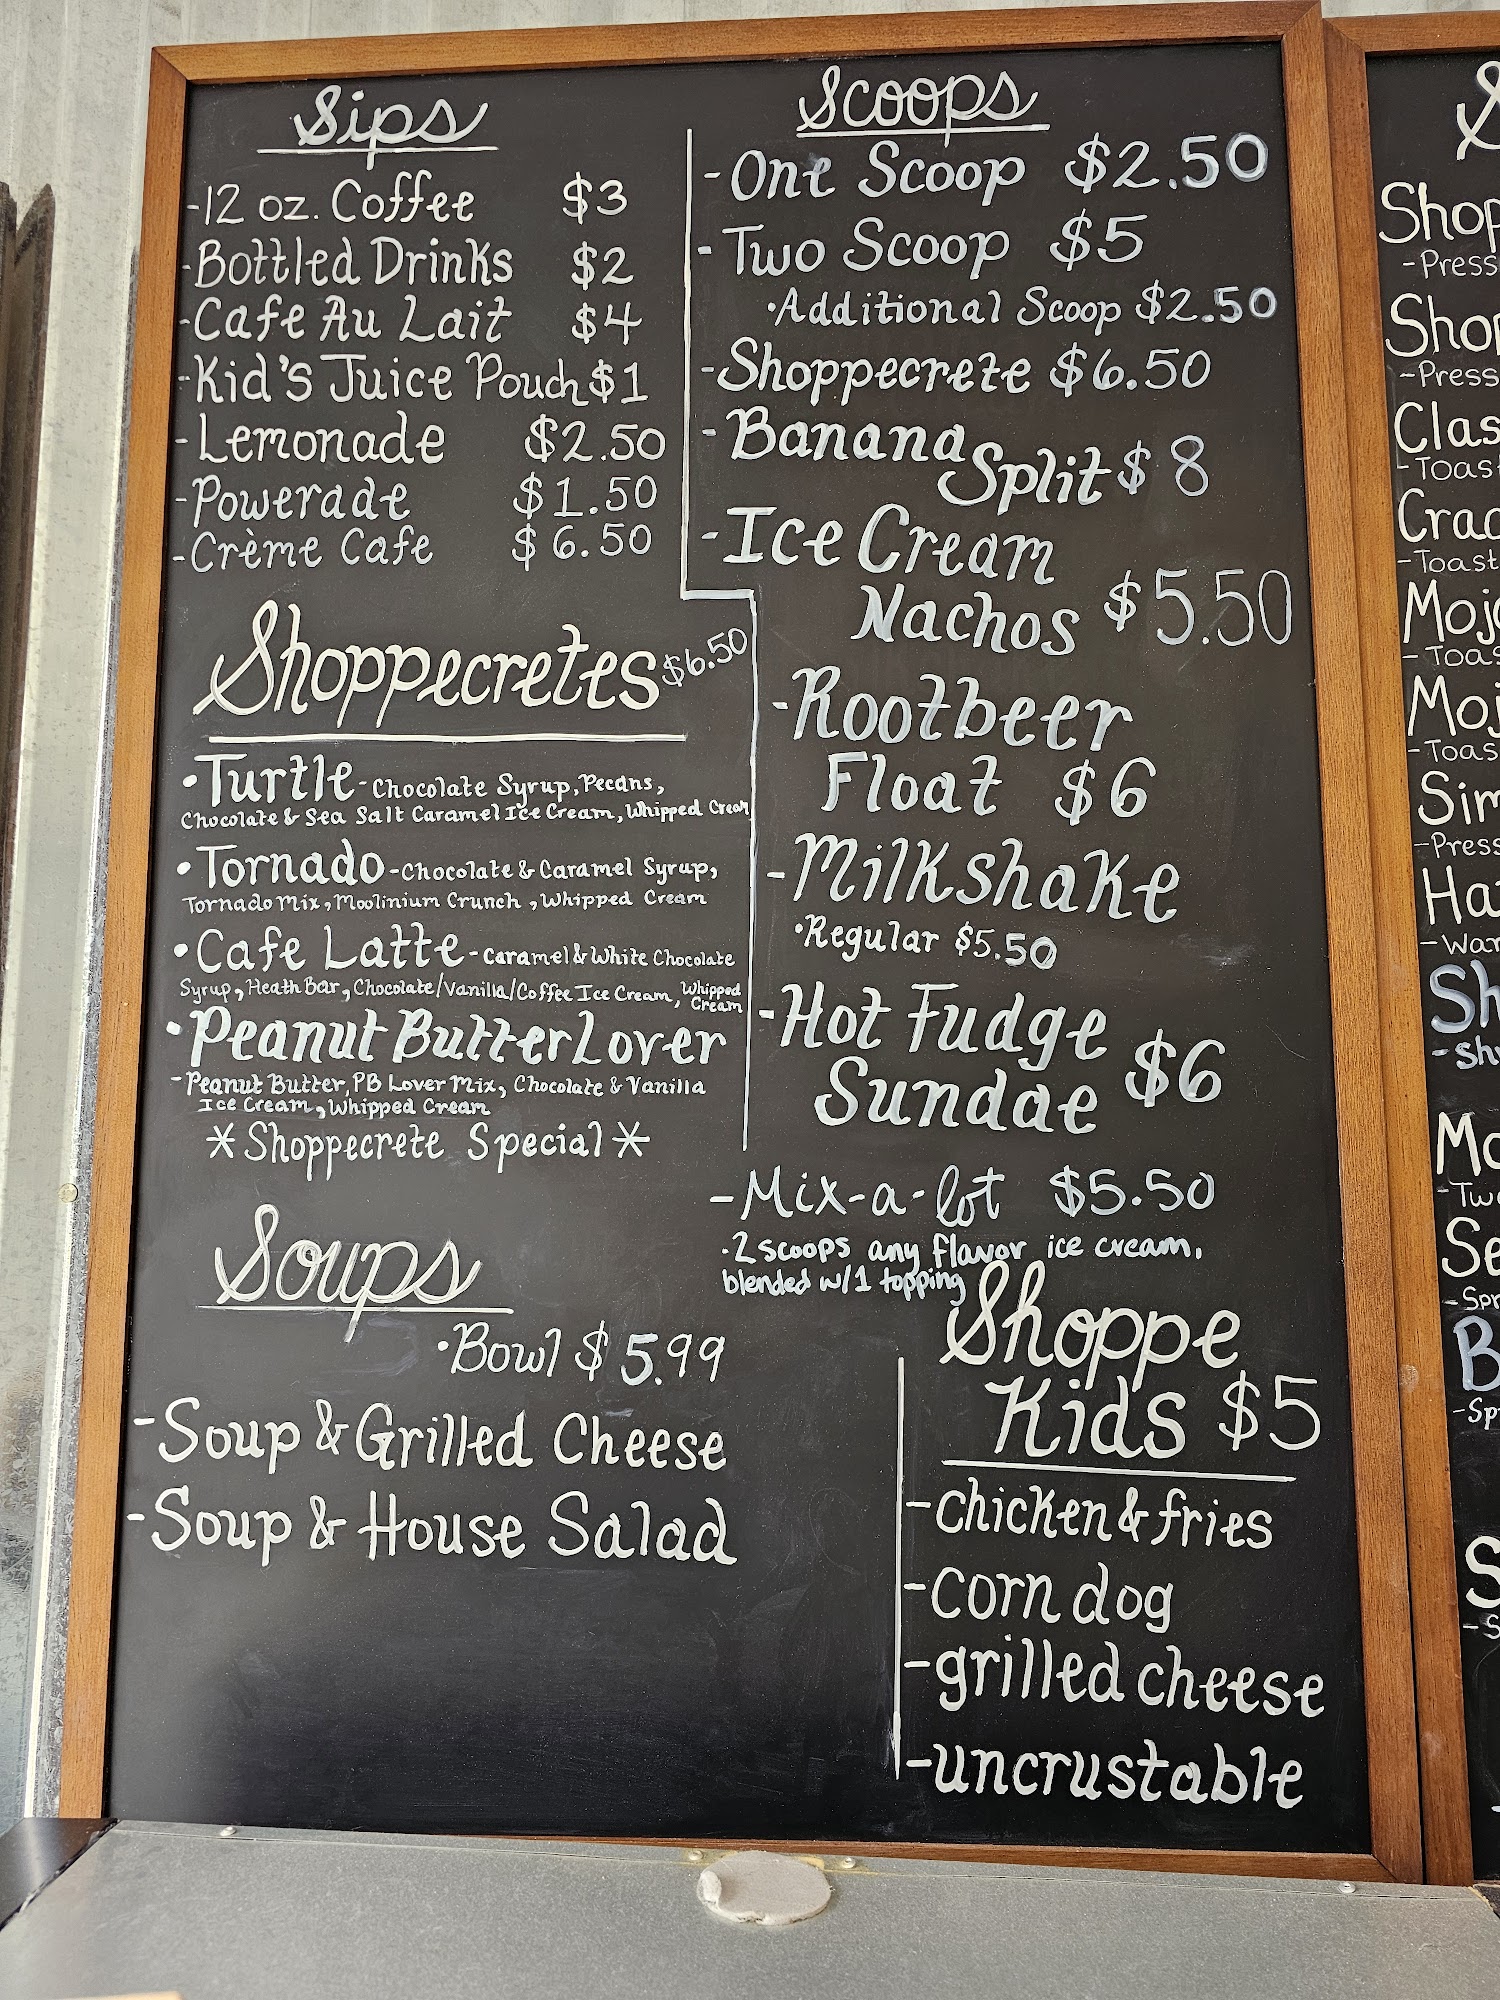 Sips
-12 oz. Coffee $3
-Bottled Drinks $2
-Cafe Au Lait $4
-Kid's Juice Pouch $1
-Lemonade $2.50
-Powerade $1.50
-Crème Cafe $6.50
Shoppecretes $6.50
•Turtle-Chocolate Syrup, Pecans,
Chocolate & Sea Salt Caramel Ice Cream, Whipped Cream
•Tornado-Chocolate & Caramel Syrup,
Tornado Mix, Moolinium Crunch, Whipped Cream
•Cafe Latte-Caramel & White Chocolate
Syrup, Heath Bar, Chocolate/Vanilla/Coffee Ice Cream, Whipped
Cream
•Peanut Butter Lover
-Peanut Butter, PB Lover Mix, Chocolate & Vanilla
Ice Cream, Whipped Cream
*Shoppecrete Special*
Soups
•Bowl $5.99
-Soup & Grilled Cheese
-Soup & House Salad
Scoops
-One Scoop $2.50
-Two Scoop $5
•Additional Scoop $2.50
-Shoppecrete $6.50
-Banana
Split $8
-Ice Cream
Nachos $5.50
-Rootbeer
Float $6
-Milkshake
•Regular $5.50
-Hot Fudge
Sundae $6
-Mix-a-lot $5.50
•2 scoops any flavor ice cream,
blended w/1 topping
Shoppe
Kids $5
-chicken & fries
-corn dog
-grilled cheese
-uncrustable